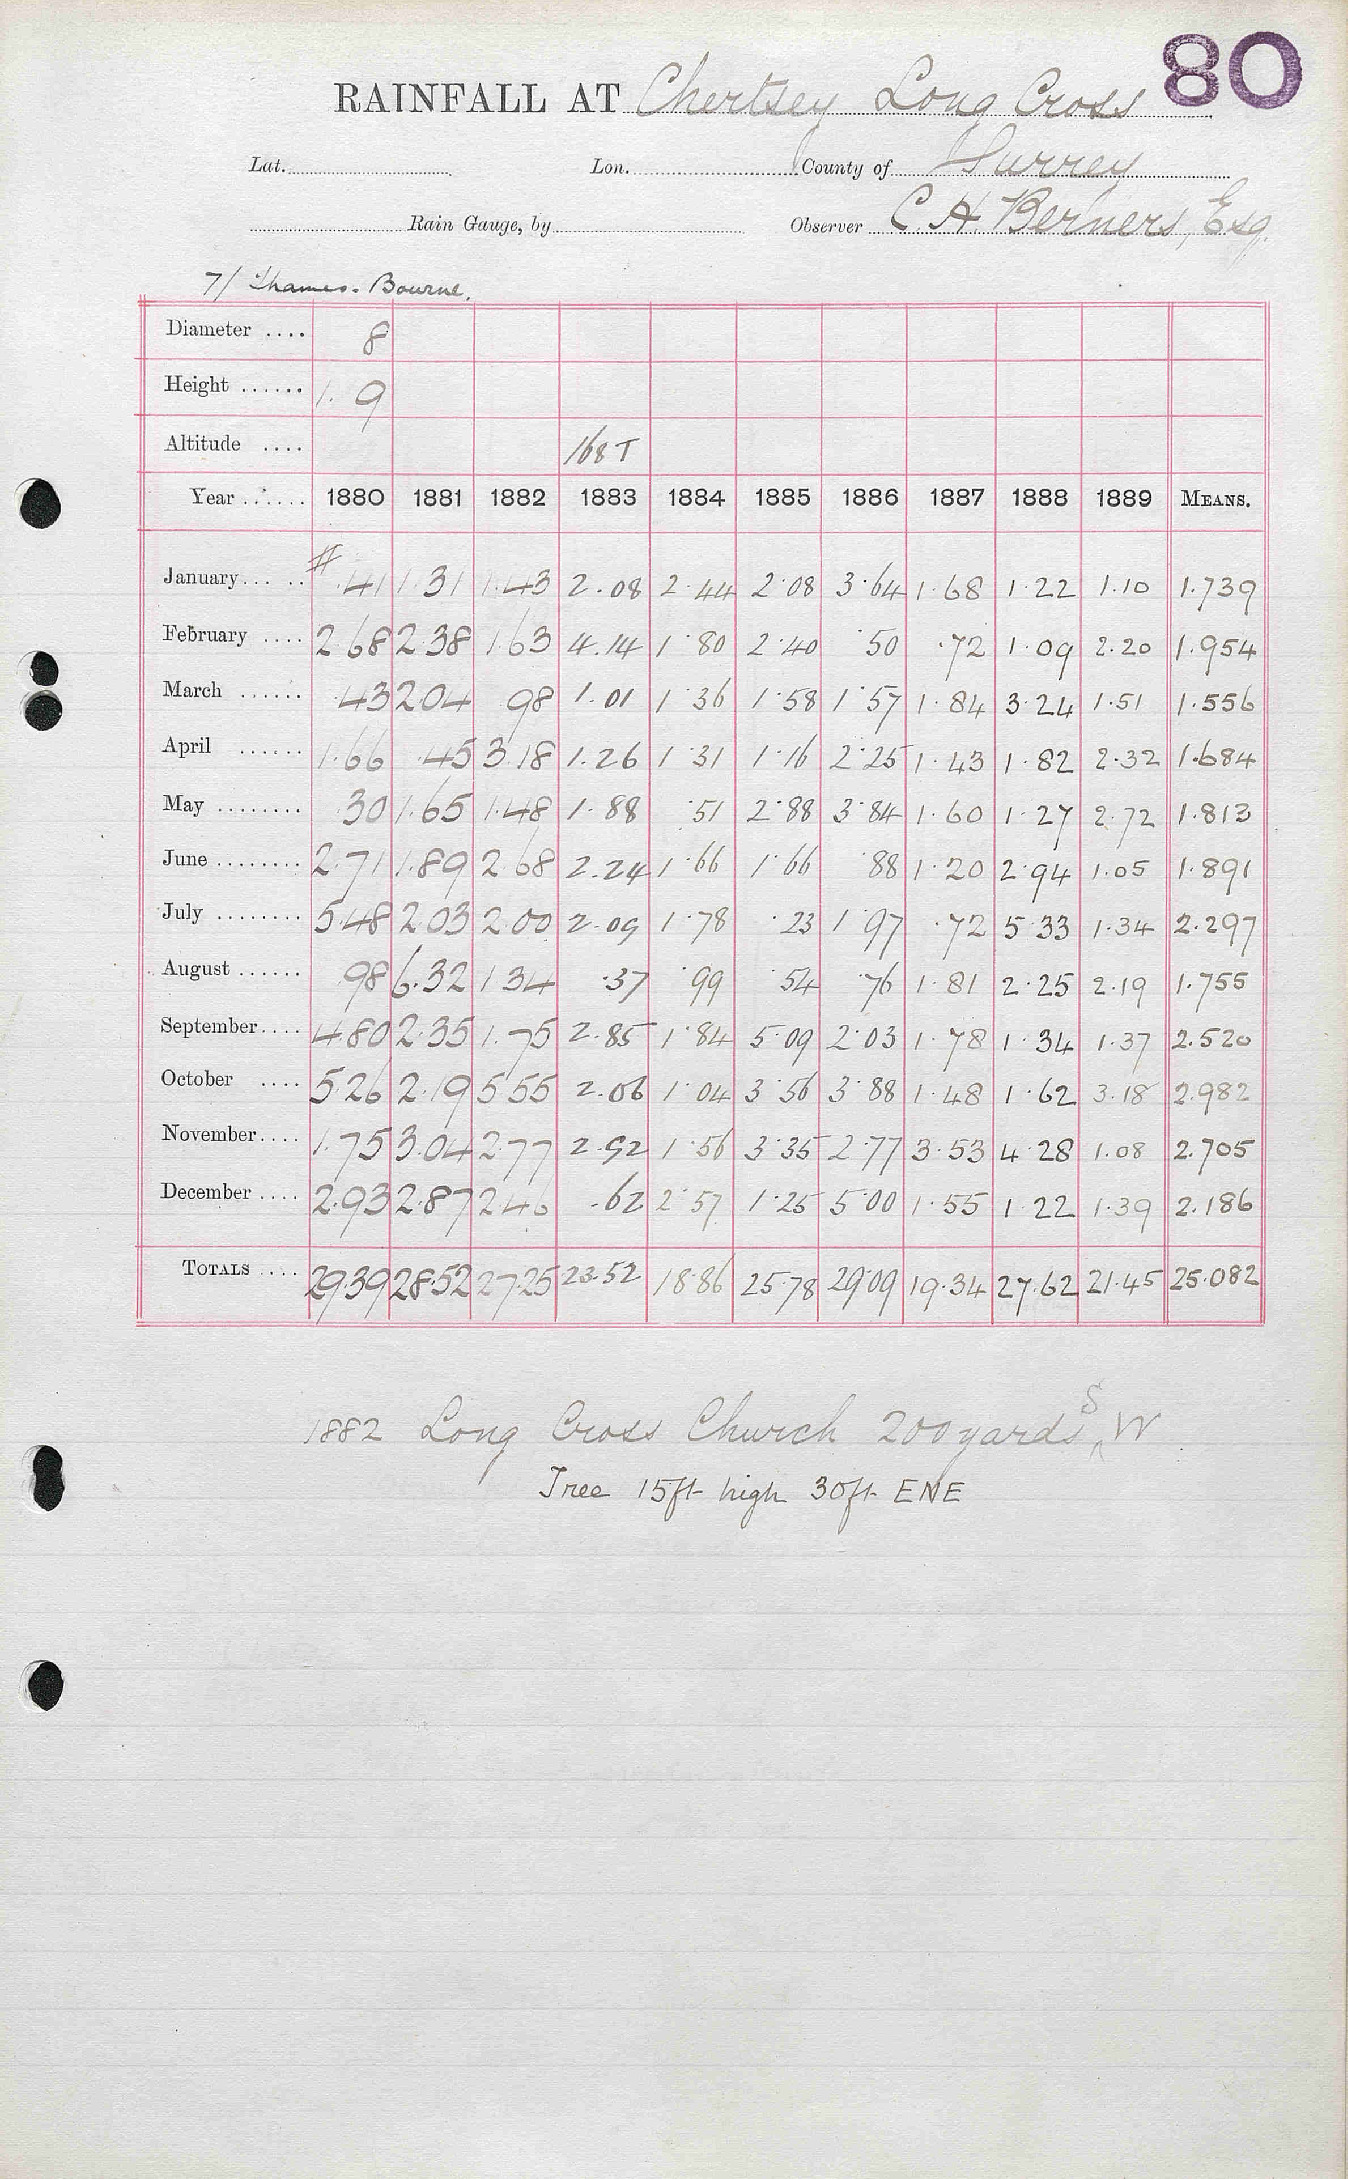 80
RAINFALL AT Chertsey Long Cross
Lat. Lon. County of Surrey
Rain Gauge, by Observer C. H. Berners, Esq.
7/ Thames. Bourne.
Diameter .... 8
Height ...... 1. 9
Altitude .... 168 T
Year ...... 1880 1881 1882 1883 1884 1885 1886 1887 1888 1889 MEANS.
January ... .. # .41 1.31 1.43 2.08 2.44 2.08 3.64 1.68 1.22 1.10 1.739
February .... 2.68 2.38 1.63 4.14 1.80 2.40 .50 .72 1.09 2.20 1.954
March ...... .43 2.04 .98 1.01 1.36 1.58 1.57 1.84 3.24 1.51 1.556
April ...... 1.66 .45 3.18 1.26 1.31 1.16 2.25 1.43 1.82 2.32 1.684
May ........ .30 1.65 1.48 1.88 .51 2.88 3.84 1.60 1.27 2.72 1.813
June ........ 2.71 1.89 2.68 2.24 1.66 1.66 .88 1.20 2.94 1.05 1.891
July ........ 5.48 2.03 2.00 2.09 1.78 .23 1.97 .72 5.33 1.34 2.297
August ...... .98 6.32 1.34 .37 .99 .54 .76 1.81 2.25 2.19 1.755
September .... 4.80 2.35 1.75 2.85 1.84 5.09 2.03 1.78 1.34 1.37 2.520
October .... 5.26 2.19 5.55 2.06 1.04 3.56 3.88 1.48 1.62 3.18 2.982
November .... 1.75 3.04 2.77 2.92 1.56 3.35 2.77 3.53 4.28 1.08 2.705
December .... 2.93 2.87 2.46 .62 2.57 1.25 5.00 1.55 1.22 1.39 2.186
TOTALS .... 29.39 28.52 27.25 23.52 18.86 25.78 29.09 19.34 27.62 21.45 25.082
1882 Long Cross Church 200 yards S W
Tree 15ft high 30ft ENE